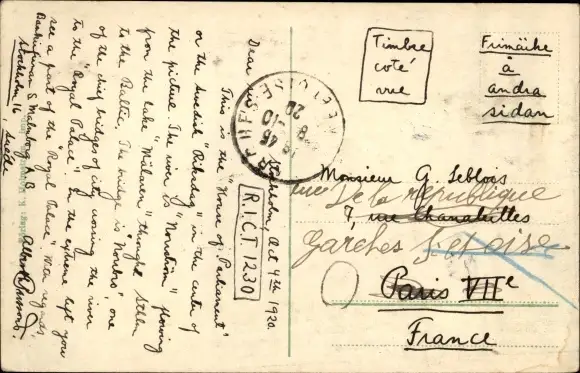 Stockholm, Oct 9th 1920.
R.I.C.T 1230
Dear
This is the "House of Parliament"
or the Swedish "Riksdag" in the center of
the picture. The river is "Norrström" flowing
from the lake "Mälaren" through Sthlm
to the Baltic. The bridge is "Norrbro", one
of the chief bridges of city crossing the river
to the "Royal Palace". In the extreme left you
see a part of the "Royal Palace". Warm regards,
Bankfirman S. Malmborg A.B.
Stockholm 16, Suède
Timbre
coté
vue
Frimärke
å
andra
sidan
GARCHES
SEINE ET OISE
16 45
8 -10
20
Monsieur G. Leblois
rue De la république
7, rue Chanaleilles
Garches S. et oise
Paris VIIe
France